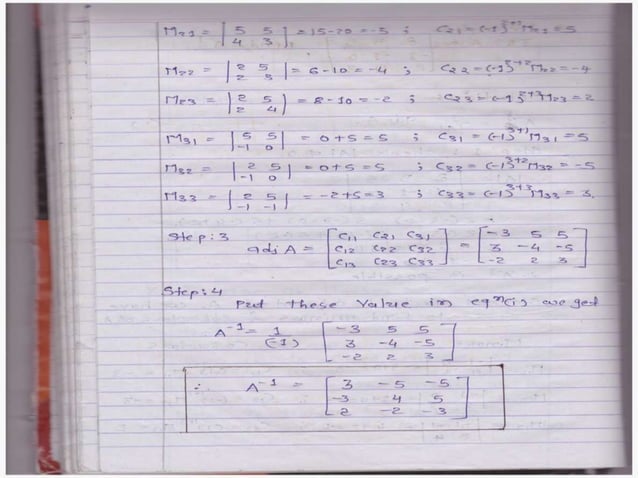 M21 = | 5 5 / 4 3 | = 15-20 = -5 ; C21 = (-1)^2+1 M21 = 5
M22 = | 2 5 / 2 3 | = 6-10 = -4 ; C22 = (-1)^2+2 M22 = -4
M23 = | 2 5 / 2 4 | = 8-10 = -2 ; C23 = (-1)^2+3 M23 = 2
M31 = | 5 5 / -1 0 | = 0+5 = 5 ; C31 = (-1)^3+1 M31 = 5
M32 = | 2 5 / -1 0 | = 0+5 = 5 ; C32 = (-1)^3+2 M32 = -5
M33 = | 2 5 / -1 -1 | = -2+5 = 3 ; C33 = (-1)^3+3 M33 = 3.
Step:3
adj A = [ C11 C21 C31 / C12 C22 C32 / C13 C23 C33 ] = [ -3 5 5 / 3 -4 -5 / -2 2 3 ]
Step:4
Put these Value in eqn(i) we get
A^-1 = 1/(-1) [ -3 5 5 / 3 -4 -5 / -2 2 3 ]
∴ A^-1 = [ 3 -5 -5 / -3 4 5 / 2 -2 -3 ]